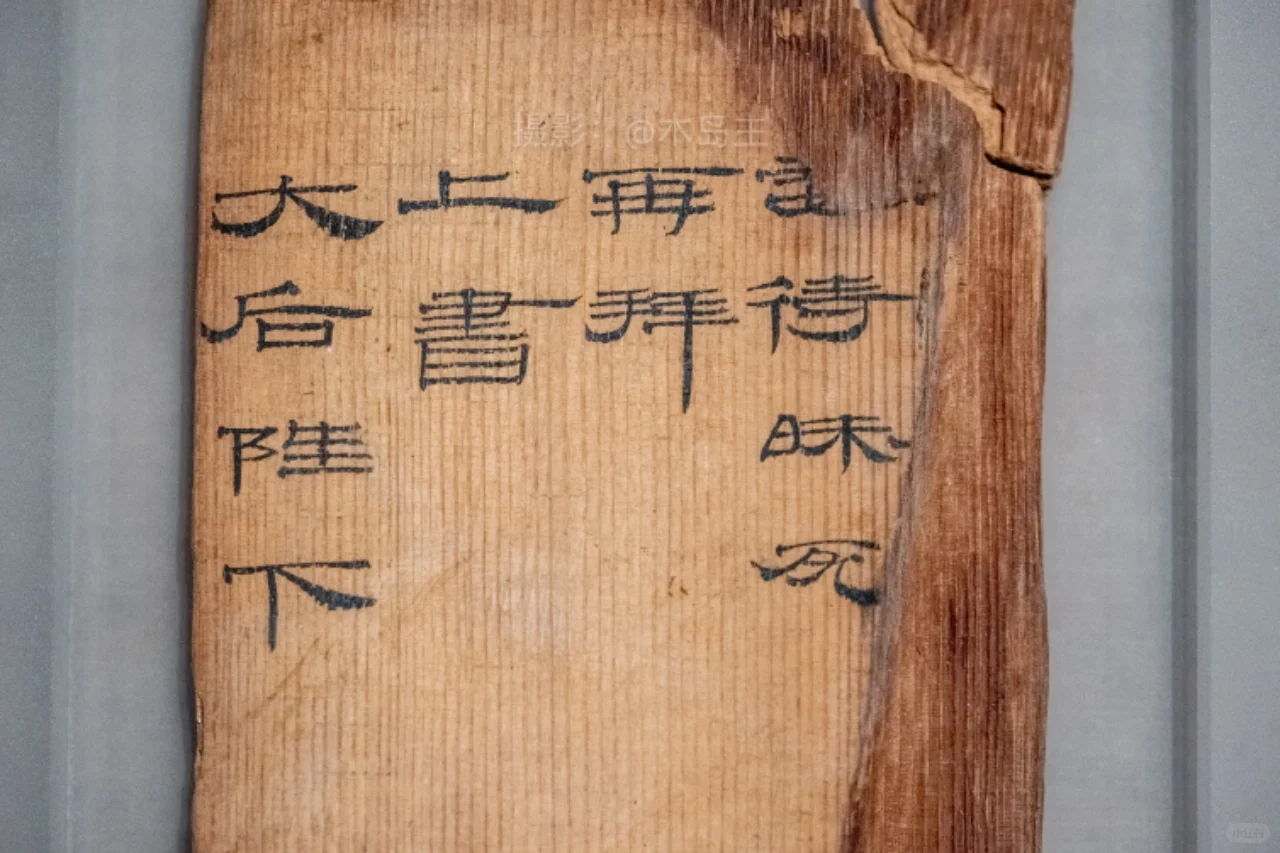 妾待昧死
再拜
上書
大后陛下
摄影：@木岛主
小红书